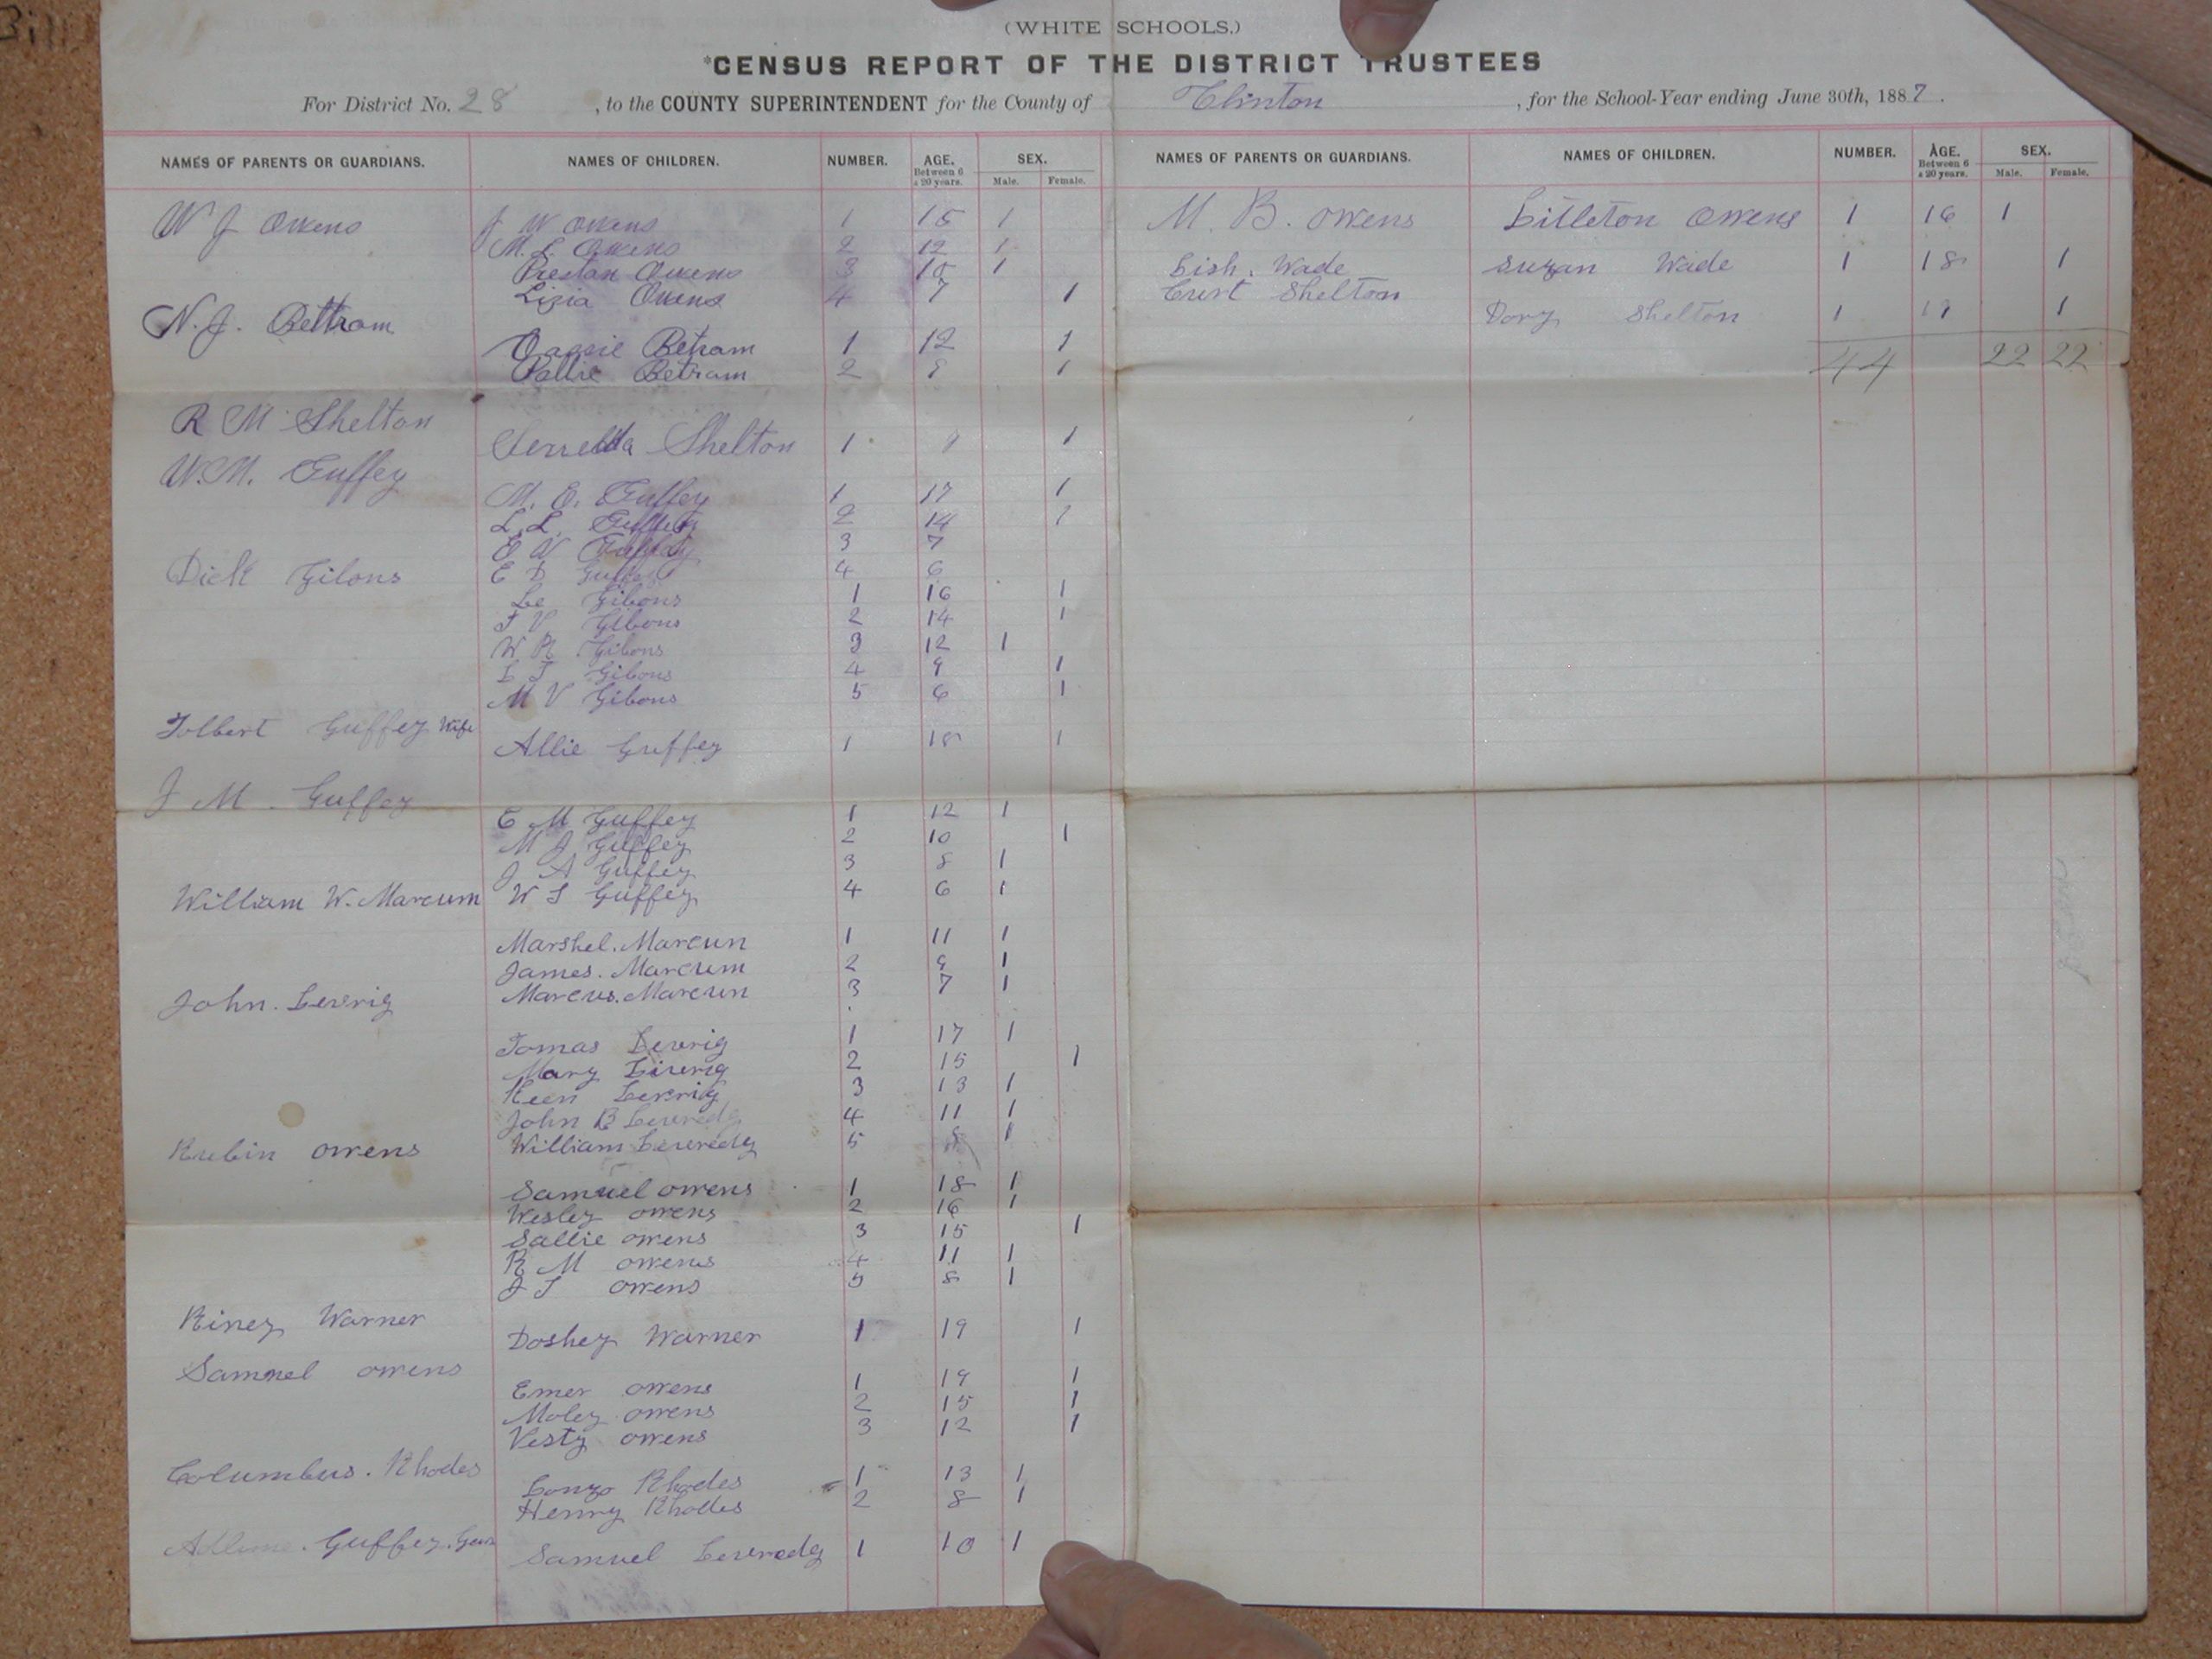 Bill
(WHITE SCHOOLS.)
*CENSUS REPORT OF THE DISTRICT TRUSTEES
For District No. 28 , to the COUNTY SUPERINTENDENT for the County of Clinton , for the School-Year ending June 30th, 1887.
NAMES OF PARENTS OR GUARDIANS. NAMES OF CHILDREN. NUMBER. AGE. Between 6 & 20 years. SEX. Male. Female.
W J Owens J W Owens 1 15 1
M. L. Owens 2 12 1
Prestan Owens 3 10 1
Lizia Owens 4 7 1
N. J. Bettram
Betram 1 12 1
Pallie Betram 2 9 1
R M Shelton
Shelton 1 9 1
W. M. Guffey
M. E. Guffey 1 17 1
L. L. Guffey 2 14 1
E W Guffey 3 7
E D Guffey 4 6
Dick Gibons
Le Gibons 1 16 1
F V Gibons 2 14 1
W R Gibons 3 12 1
L J Gibons 4 9 1
M V Gibons 5 6 1
Tolbert Guffey Wife
Allie Guffey 1 18 1
J M. Guffey
E M Guffey 1 12 1
M J Guffey 2 10 1
J A Guffey 3 8 1
W S Guffey 4 6 1
William W. Marcum
Marshel. Marcun 1 11 1
James. Marcum 2 9 1
Marcus. Marcun 3 7 1
John. Levrig
Tomas Levrig 1 17 1
Mary Livrig 2 15 1
Keen Levrig 3 13 1
John B Levredg 4 11 1
William Levredg 5 8 1
Rubin owens
Samuel owens 1 18 1
Wesley owens 2 16 1
Sallie owens 3 15 1
R M owens 4 11 1
J T owens 5 8 1
Riney Warner
Doshey Warner 1 19 1
Samuel owens
Emer owens 1 19 1
Moley owens 2 15 1
Vesty owens 3 12 1
Columbus. Rhodes
Lonzo Rhodes 1 13 1
Henry Rhodes 2 8 1
Guffey.
Samuel Levredg 1 10 1
NAMES OF PARENTS OR GUARDIANS. NAMES OF CHILDREN. NUMBER. AGE. Between 6 & 20 years. SEX. Male. Female.
M. B. owens Litleton owens 1 16 1
Lish. Wade Suzan Wade 1 18 1
Curt Shelton
Dory Shelton 1 1
44 22 22